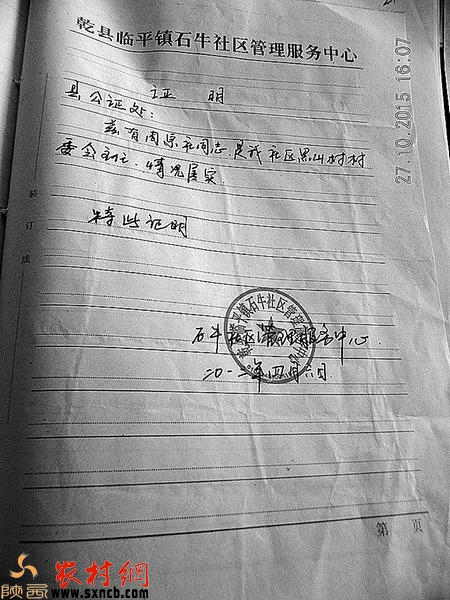 乾县临平镇石牛社区管理服务中心
27.10.2015 16:07
证 明
县公证处:
兹有周宗社同志,是我社区黑山村村
委会主任,情况属实.
特此证明
装订线
乾县临平镇石牛社区管理服务中心
石牛社区管理服务中心
二〇一二年四月六日
第 页
陕西
农村網
www.sxncb.com